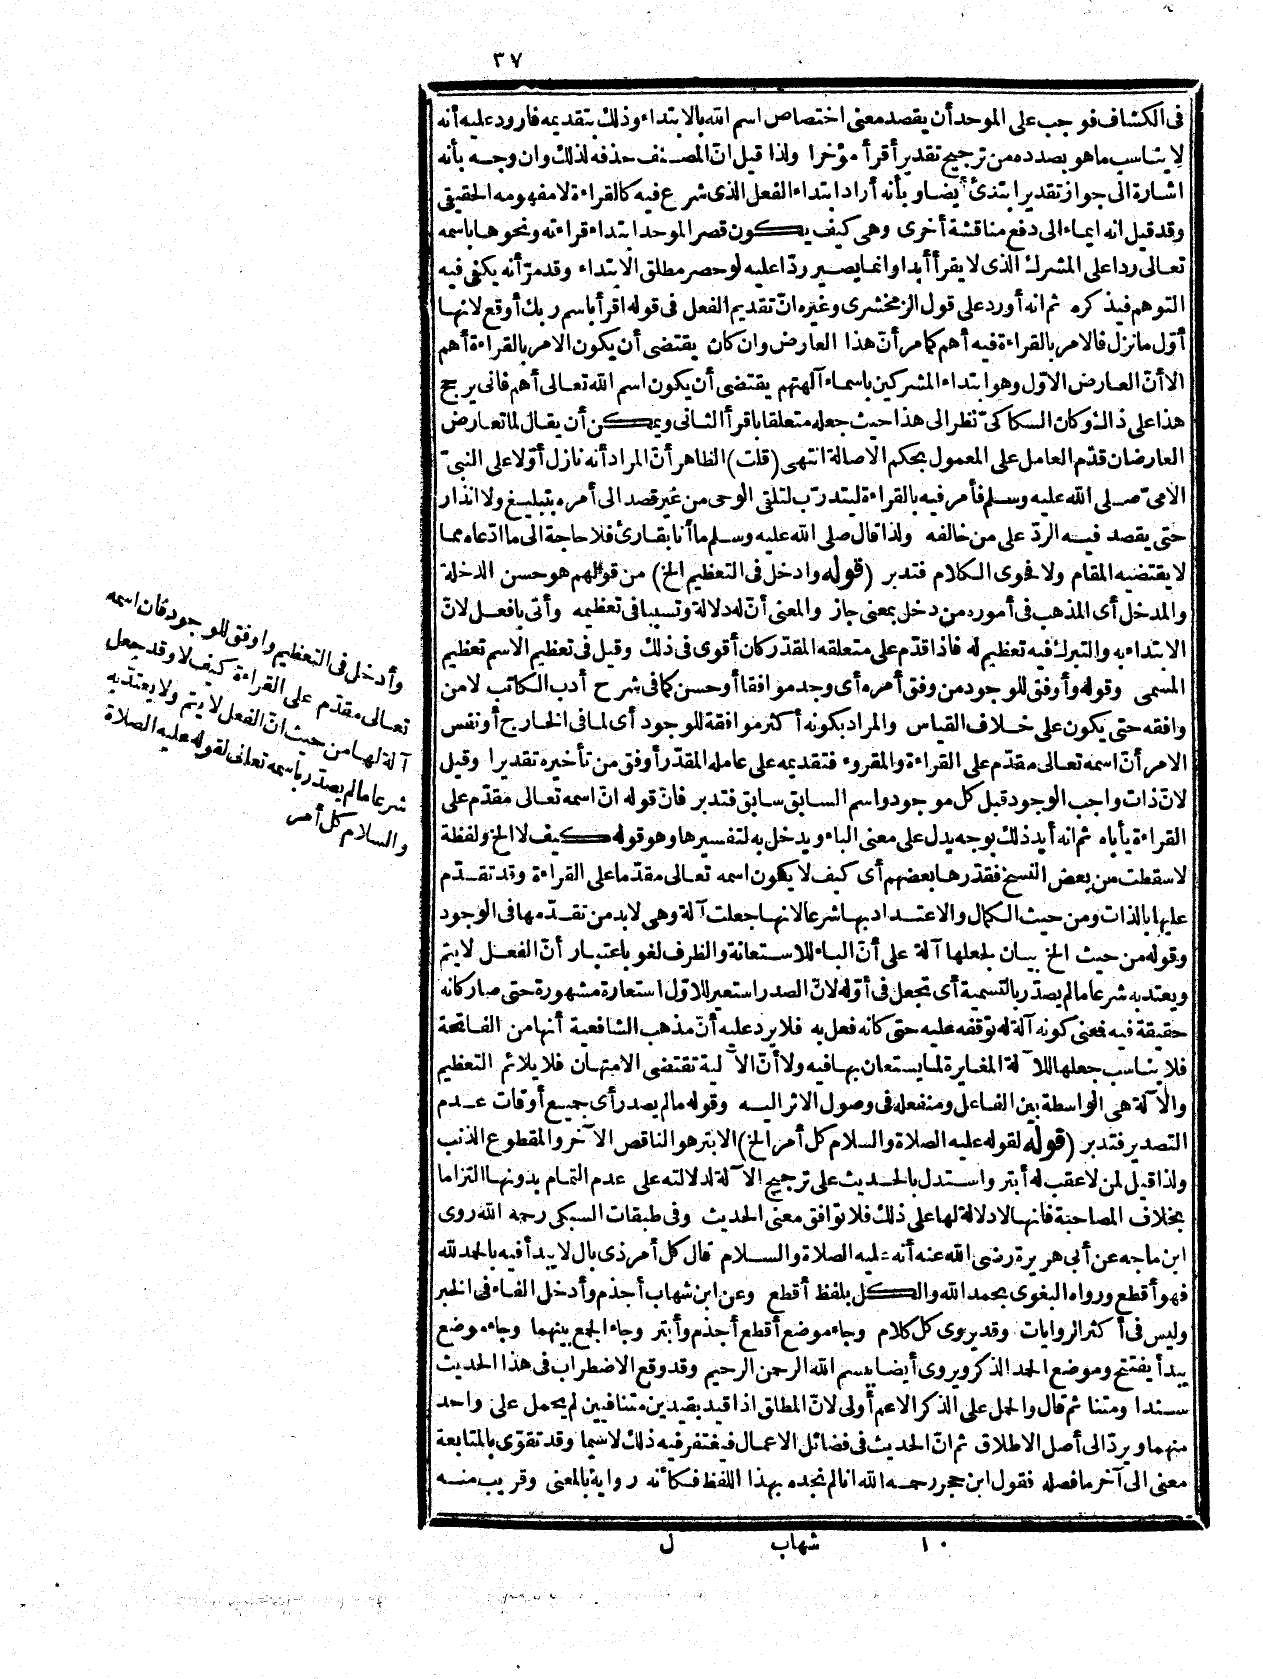 ٣٧
فى الكشاف فوجب على الموحد أن يقصد معنى اختصاص اسم الله بالابتداء وذلك بتقديمه فاورد عليه أنه
لا يتاسب ما هو بصدده من ترجيح تقدير أقرأ مؤخرا ولذا قيل انّ المصنف حذفه لذلك وان وجه بأنه
اشارة الى جواز تقدير ابتدئ أيضا وبأنه أراد ابتداء الفعل الذى شرع فيه كالقراءة لا مفهومه الحقيقى
وقد قيل انه ايماء الى دفع مناقشة أخرى وهى كيف يكون قصر الموحد ابتداء قراءته ونحوها باسمه
تعالى ردا على المشرك الذى لا يقرأ أبدا وانما يصير ردّا عليه لو حصر مطلق الابتداء وقد مرّ أنه يكفى فيه
التوهم فيذكره ثم انه أورد على قول الزمخشرى وغيره انّ تقديم الفعل فى قوله اقرأ باسم ربك أوقع لانها
أوّل ما نزل فالامر بالقراءة فيه أهم كما مر أنّ هذا العارض وان كان يقتضى أن يكون الامر بالقراءة أهم
الا أنّ العارض الاوّل وهو ابتداء المشركين باسماء آلهتهم يقتضى أن يكون اسم الله تعالى أهم فانى يرجح
هذا على ذالك وكان السكاكىّ نظر الى هذا حيث جعله متعلقا باقرأ الثانى ويمكن أن يقال لما تعارض
العارضان قدّم العامل على المعمول بحكم الاصالة انتهى (قلت) الظاهر أنّ المراد أنه نازل أوّلا على النبىّ
الامىّ صلى الله عليه وسلم فأمر فيه بالقراءة ليتدرّب لتلقى الوحى من غير قصد الى أمره بتبليغ ولا انذار
حتى يقصد فيه الردّ على من خالفه ولذا قال صلى الله عليه وسلم ما أنا بقارئ فلا حاجة الى ما ادّعاه مما
لا يقتضيه المقام ولا فحوى الكلام فتدبر (قوله وادخل فى التعظيم الخ) من قولهم هو حسن الدخلة
والمدخل أى المذهب فى أموره من دخل بمعنى جاز والمعنى أنّ له دلالة وتسببا فى تعظيمه وأتى بافعل لانّ
الابتداء به والتبرك فيه تعظيم له فاذا قدّم على متعلقه المقدّر كان أقوى فى ذلك وقيل فى تعظيم الاسم تعظيم
المسمى وقوله وأوفق للوجود من وفق أمره أى وجد موافقا أو حسن كما فى شرح أدب الكاتب لا من
وافقه حتى يكون على خلاف القياس والمراد بكونه أكثر موافقة للوجود أى لما فى الخارج أو نفس
الامر أنّ اسمه تعالى مقدّم على القراءة والمقروء فتقديمه على عامله المقدّر أوفق من تأخيره تقديرا وقيل
لانّ ذات واجب الوجود قبل كل موجود واسم السابق سابق فتدبر فانّ قوله انّ اسمه تعالى مقدّم على
القراءة يأباه ثم انه أيد ذلك بوجه يدل على معنى الباء ويدخل به لتفسيرها وهو قوله كيف لا الخ ولفظة
لا سقطت من بعض النسخ فقدّرها بعضهم أى كيف لا يكون اسمه تعالى مقدّما على القراءة وقد تقدّم
عليها بالذات ومن حيث الكمال والاعتداد بها شرعا لانها جعلت آلة وهى لا بد من تقدّمها فى الوجود
وقوله من حيث الخ بيان لجعلها آلة على أنّ الباء للاستعانة والظرف لغو باعتبار أنّ الفعل لا يتم
ويعتد به شرعا ما لم يصدّر بالتسمية أى تجعل فى أوّله لانّ الصدر استعير للاوّل استعارة مشهورة حتى صار كانه
حقيقة فيه فمعنى كونه آلة له توقفه عليه حتى كانه فعل به فلا يرد عليه أنّ مذهب الشافعية أنها من الفاتحة
فلا يتاسب جعلها للآلة المغايرة لما يستعان بها فيه ولا أنّ الآلية تقتضى الامتهان فلا يلائم التعظيم
والآلة هى الواسطة بين الفاعل ومنفعله فى وصول الاثر اليه وقوله ما لم يصدر أى جميع أوقات عدم
التصدير فتدبر (قوله لقوله عليه الصلاة والسلام كل أمر الخ) الابتر هو الناقص الآخر والمقطوع الذنب
ولذا قيل لمن لا عقب له أبتر واستدل بالحديث على ترجيح الآلة لدلالته على عدم التمام بدونها التزاما
بخلاف المصاحبة فانها لا دلالة لها على ذلك فلا توافق معنى الحديث وفى طبقات السبكى رحمه الله روى
ابن ماجه عن أبى هريرة رضى الله عنه أنه عليه الصلاة والسلام قال كل أمر ذى بال لا يبدأ فيه بالحمد لله
فهو أقطع ورواه البغوى بحمد الله والكل بلفظ أقطع وعن ابن شهاب أجذم وأدخل الفاء فى الخبر
وليس فى أكثر الروايات وقد يروى كل كلام وجاء موضع أقطع أجذم وأبتر وجاء الجمع بينهما وجاء موضع
يبدأ يفتتح وموضع الحمد الذكر ويروى أيضا ببسم الله الرحمن الرحيم وقد وقع الاضطراب فى هذا الحديث
سندا ومتنا ثم قال والحمل على الذكر الاعم أولى لانّ المطلق اذا قيد بقيدين متنافيين لم يحمل على واحد
منهما ويردّ الى أصل الاطلاق ثم انّ الحديث فى فضائل الاعمال فيغتفر فيه ذلك لا سيما وقد تقوّى بالمتابعة
معنى الى آخر ما فصله فقول ابن حجر رحمه الله انا لم نجده بهذا اللفظ فكأنه رواية بالمعنى وقريب منه
وأدخل فى التعظيم واوفق للوجود فان اسمه
تعالى مقدّم على القراءة كيف لا وقد جعل
آلة لها من حيث انّ الفعل لا يتم ولا يعتد به
شرعا ما لم يصدّر باسمه تعالى لقوله عليه الصلاة
والسلام كل أمر
١٠ شهاب ل